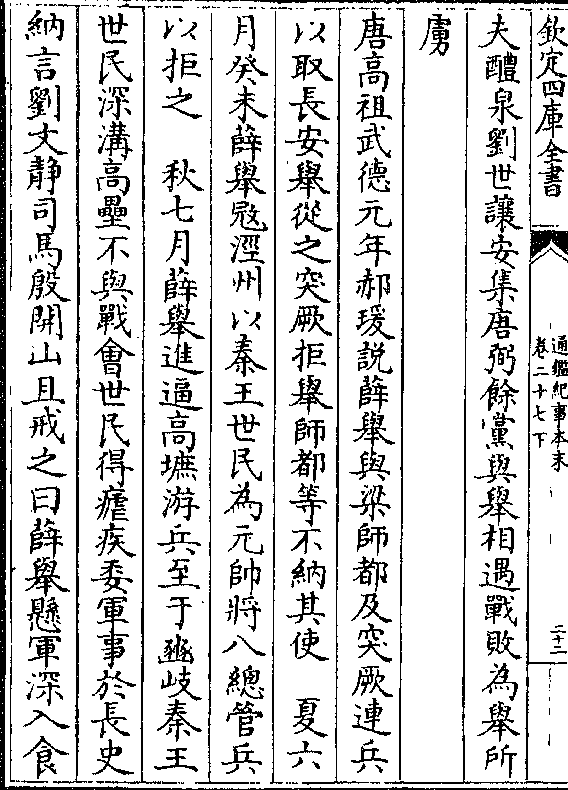 欽定四庫全書
通鑑紀事本末
卷二十七下
二十二
夫醴泉劉世讓安集唐弼餘黨與舉相遇戰敗為舉所
虜
唐高祖武德元年郝瑗説薛舉與梁師都及突厥連兵
以取長安舉從之突厥拒舉師都等不納其使　夏六
月癸未薛舉㓂涇州以秦王世民為元帥將八總管兵
以拒之　秋七月薛舉進逼高墌游兵至于豳岐秦王
世民深溝高壘不與戰會世民得瘧疾委軍事於長史
納言劉文靜司馬殷開山且戒之曰薛舉懸軍深入食